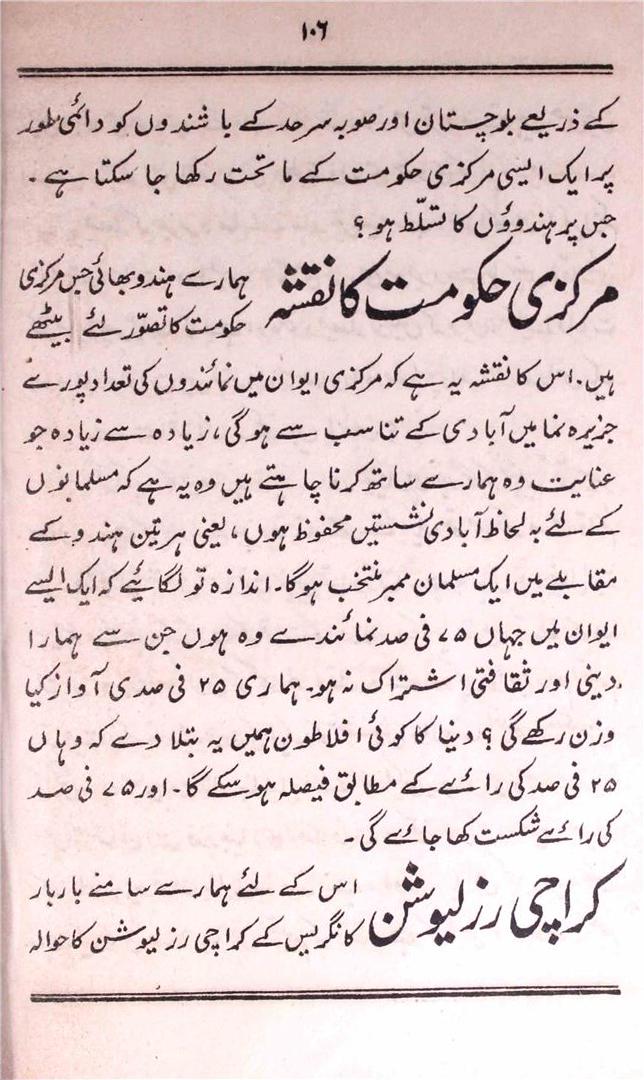 ۱۰۶
کے ذریعے بلوچستان اور صوبہ سرحد کے باشندوں کو دائمی طور
پر ایک ایسی مرکزی حکومت کے ماتحت رکھا جا سکتا ہے۔
جس پر ہندوؤں کا تسلّط ہو؟
مرکزی حکومت کا نقشہ
ہمارے ہندو بھائی جس مرکزی
حکومت کا تصوّر لئے بیٹھے
ہیں۔ اس کا نقشہ یہ ہے کہ مرکزی ایوان میں نمائندوں کی تعداد پورے
جزیرہ نما میں آبادی کے تناسب سے ہوگی، زیادہ سے زیادہ جو
عنایت وہ ہمارے ساتھ کرنا چاہتے ہیں وہ یہ ہے کہ مسلمانوں
کے لئے بہ لحاظ آبادی نشستیں محفوظ ہوں، یعنی ہر تین ہندو کے
مقابلے میں ایک مسلمان ممبر منتخب ہوگا۔ اندازہ تو لگائیے کہ ایک ایسے
ایوان میں جہاں ۷۵ فی صد نمائندے وہ ہوں جن سے ہمارا
دینی اور ثقافتی اشتراک نہ ہو۔ ہماری ۲۵ فی صدی آواز کیا
وزن رکھے گی؟ دنیا کا کوئی افلاطون ہمیں یہ بتلا دے کہ وہاں
۲۵ فی صد کی رائے کے مطابق فیصلہ ہو سکے گا۔ اور ۷۵ فی صد
کی رائے شکست کھا جائے گی۔
کراچی رزلیوشن
اس کے لئے ہمارے سامنے بار بار
کانگریس کے کراچی رزلیوشن کا حوالہ